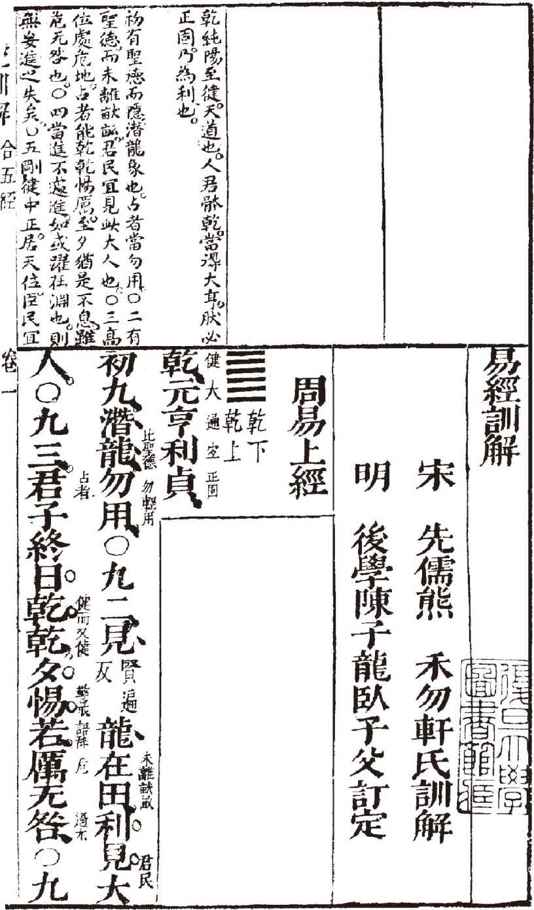 易經訓解
宋　先儒熊　禾勿軒氏訓解
明　後學陳子龍臥子父訂定
周易上經
乾下
乾上
乾元亨利貞
健　大　通　宜　正固
初九潛龍勿用○九二見龍在田利見大
比聖德　勿輕用
賢遍反
未離畎畝　君民
人○九三君子終日乾乾夕惕若厲无咎○九
占者　健而又健
危
乾純陽至健天道也人君能乾當得大亨然必
正固乃為利也
初有聖德而隱潛龍象也占者當勿用○二有
聖德而未離畎畝君民宜見此大人也○三高
位處危地占者能乾乾惕厲至夕猶是不息雖
危无咎也○四當進不遽進如或躍在淵也則
無妄進之失矣○五剛健中正居天位臣民宜
訓解　合五經　卷一
復旦大學
圖書館